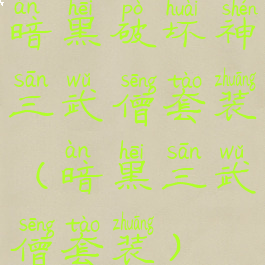 àn hēi pò huài shén
暗黑破坏神
sān wǔ sēng tào zhuāng
三武僧套装
àn hēi sān wǔ
（暗黑三武
sēng tào zhuāng
僧套装）